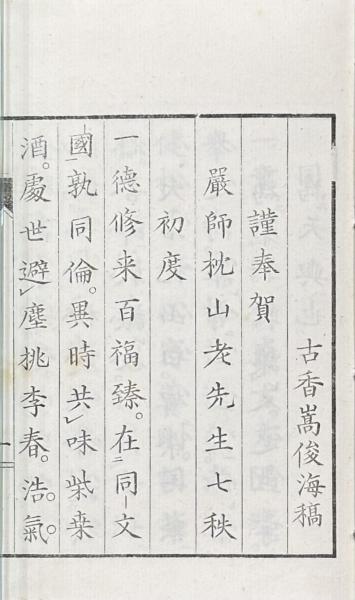 古香嵩俊海稿
謹奉賀
嚴師枕山老先生七秩
初度
一德修来百福臻。在二同文
國一孰同倫。異時共レ味柴桑
酒。處世避レ塵桃李春。浩。氣。